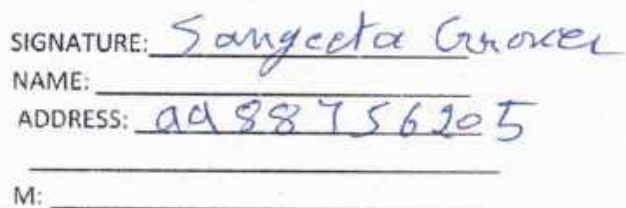 SIGNATURE: Sangeeta Grover
NAME:
ADDRESS: 9988756205
M: